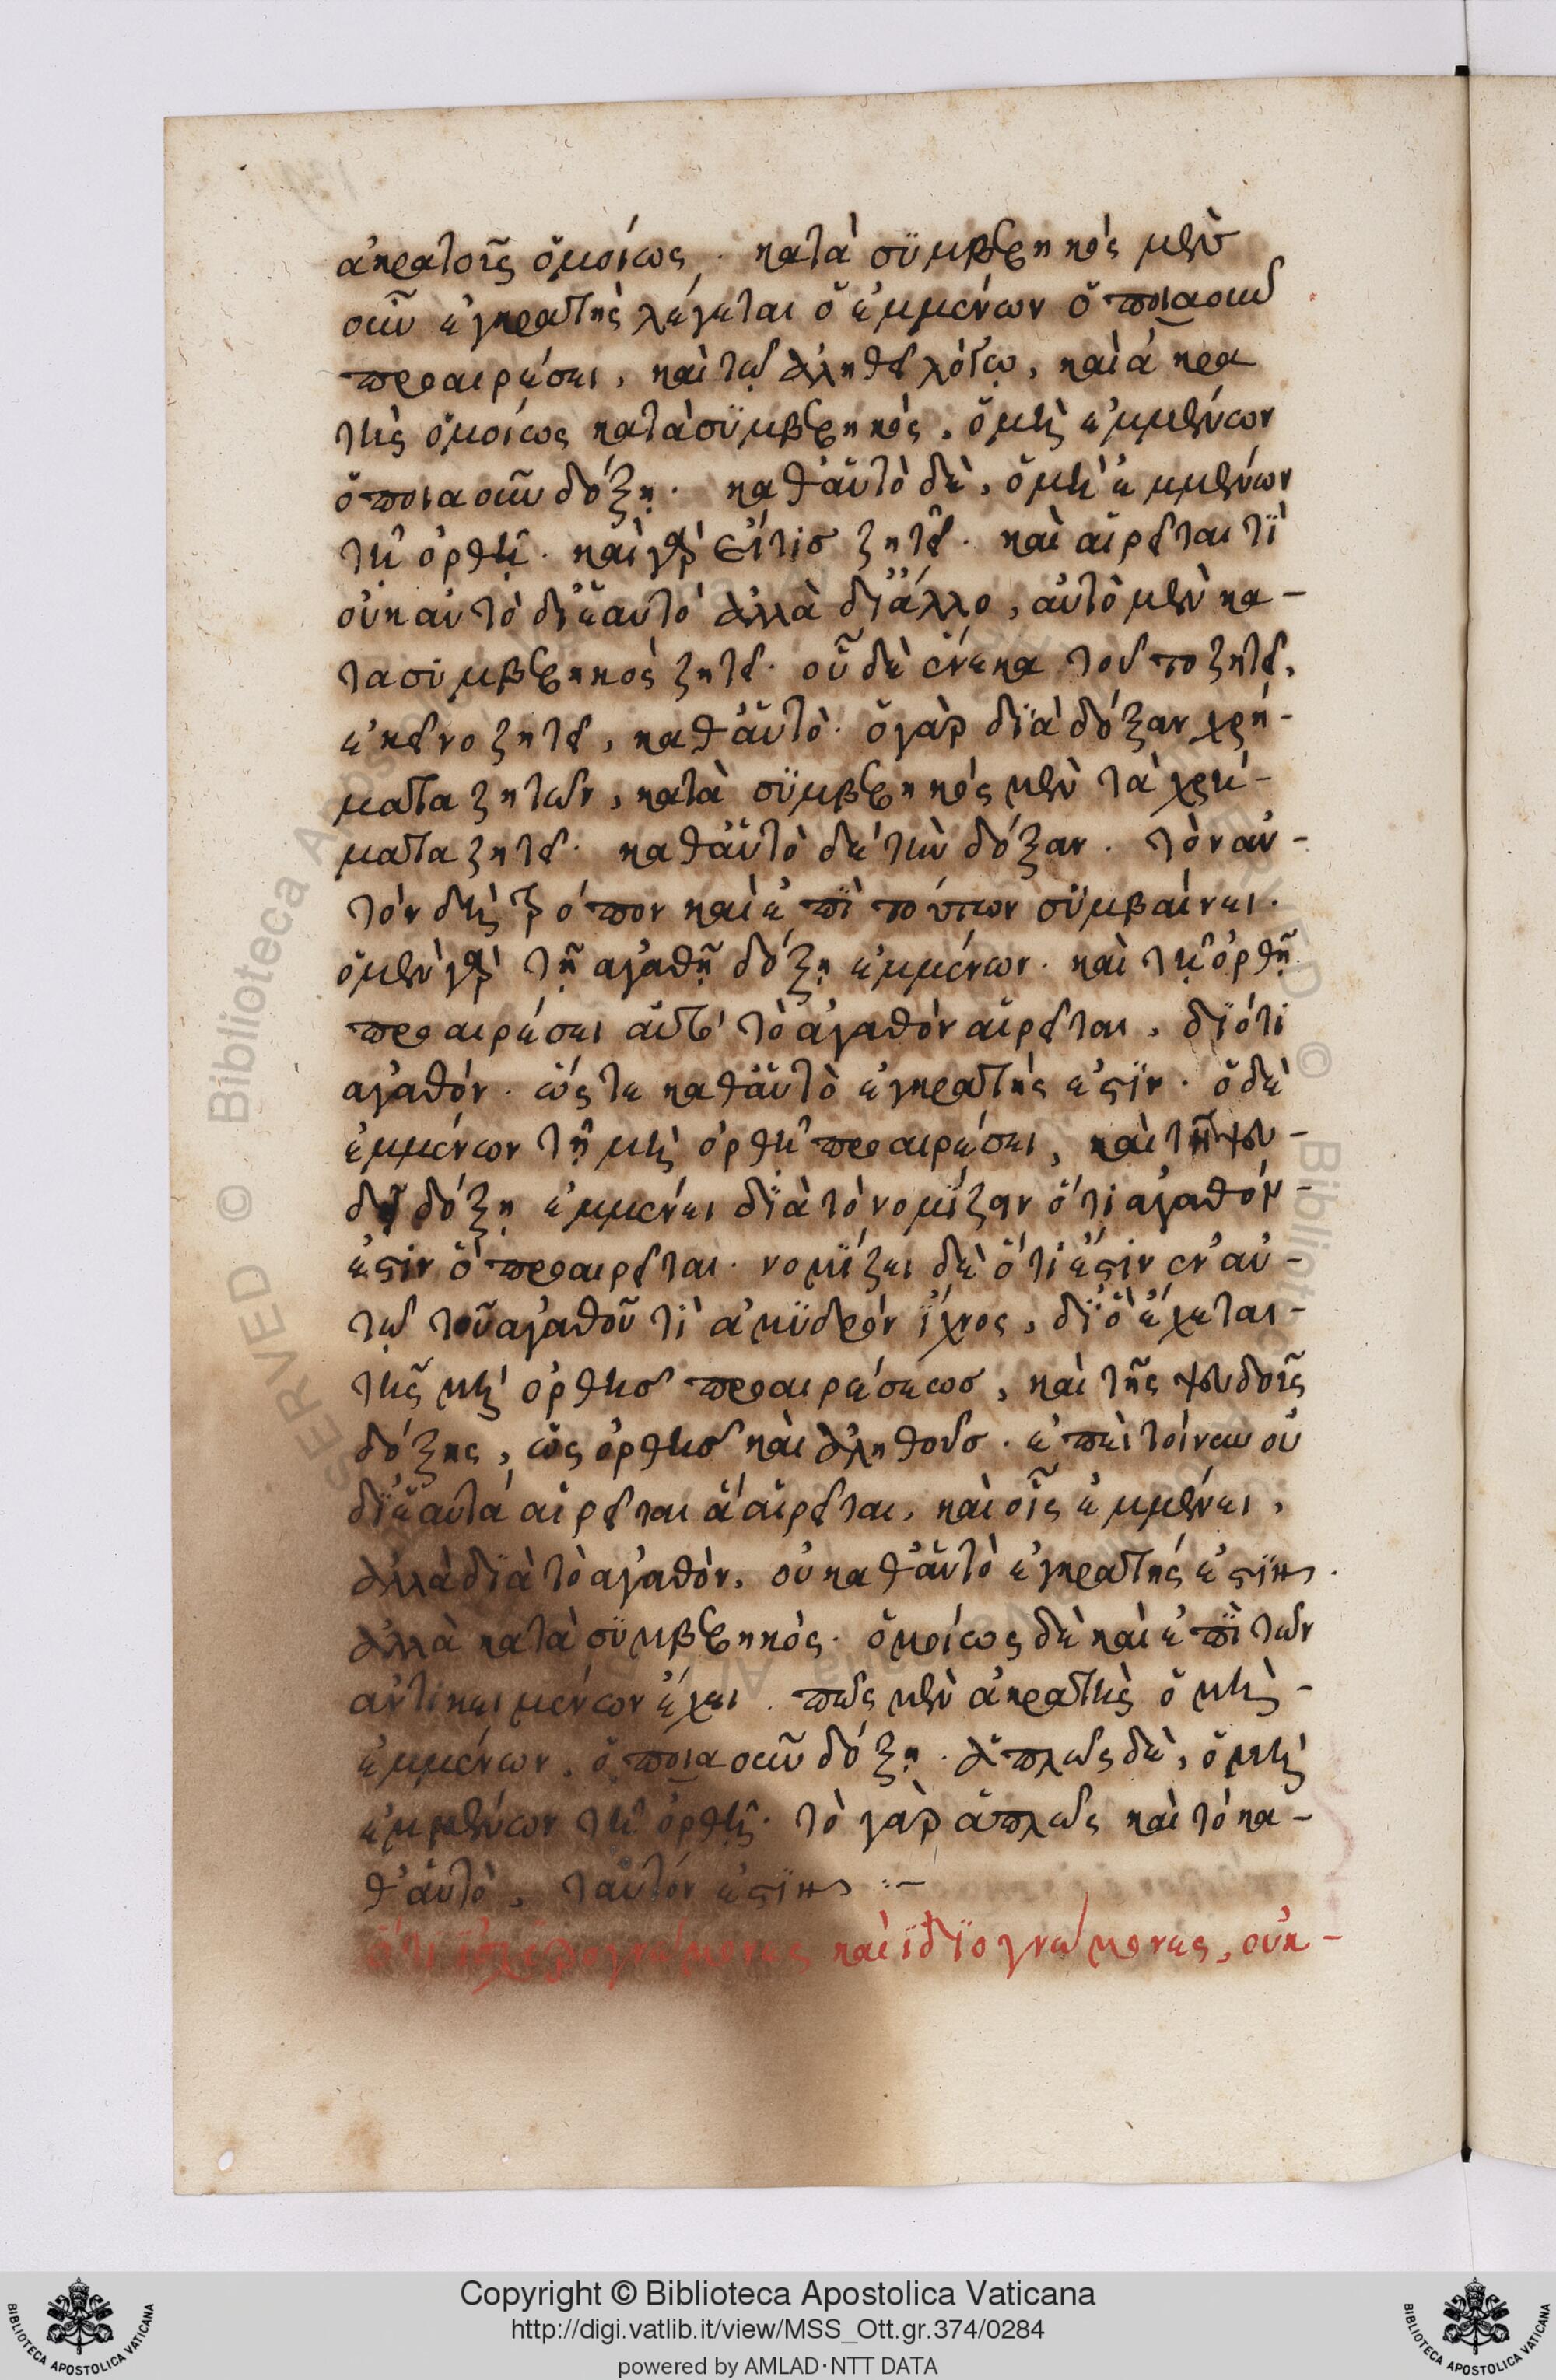 ἀκρατοῦς ὁμοίως. κατὰ συμβεβηκὸς μὲν
οὖν ἐγκρατὴς λέγεται ὁ ἐμμένων ὁποιαοῦν
προαιρέσει, καὶ τῷ ἀληθεῖ λόγῳ, καὶ ἀκρα
τὴς ὁμοίως κατὰ συμβεβηκὸς, ὁ μὴ ἐμμένων
ὁποιαοῦν δόξῃ. καθ' αὑτὸ δὲ, ὁ μὴ ἐμμένων
τῇ ὀρθῇ. καὶ γὰρ εἴ τις ζητεῖ. καὶ αἱρεῖται τὶ
οὐκ αὐτὸ δι' ἑαυτὸ ἀλλὰ δι' ἄλλο, αὐτὸ μὲν κα-
τὰ συμβεβηκὸς ζητεῖ. οὗ δὲ ἕνεκα τοῦτο ζητεῖ,
ἐκεῖνο ζητεῖ, καθ' αὑτὸ. ὁ γὰρ διὰ δόξαν χρή-
ματα ζητῶν, κατὰ συμβεβηκὸς μὲν τὰ χρή-
ματα ζητεῖ. καθ' αὑτὸ δὲ τὴν δόξαν. τὸν αὐ-
τὸν δὴ τρόπον καὶ ἐπὶ τούτων συμβαίνει.
ὁ μὲν γὰρ τῇ ἀγαθῇ δόξῃ ἐμμένων. καὶ τῇ ὀρθῇ
προαιρέσει αὐτὸ τὸ ἀγαθὸν αἱρεῖται, διότι
ἀγαθόν. ὥστε καθ' αὑτὸ ἐγκρατής ἐστιν. ὁ δὲ
ἐμμένων τῇ μὴ ὀρθῇ προαιρέσει, καὶ τῇ ψευ-
δεῖ δόξῃ ἐμμένει διὰ τὸ νομίζειν ὅτι ἀγαθόν
ἐστιν ὃ προαιρεῖται. νομίζει δὲ ὅτι ἔστιν ἐν αὐ-
τῷ τοῦ ἀγαθοῦ τὶ ἀμυδρὸν ἴχνος, διὸ ἔχεται
τῆς μὴ ὀρθῆς προαιρέσεως, καὶ τῆς ψευδοῦς
δόξης, ὡς ὀρθῆς καὶ ἀληθοῦς. ἐπεὶ τοίνυν οὐ
δι' ἑαυτὰ αἱρεῖται ἃ αἱρεῖται, καὶ οἷς ἐμμένει,
ἀλλὰ διὰ τὸ ἀγαθὸν, οὐ καθ' αὑτὸ ἐγκρατής ἐστιν.
ἀλλὰ κατὰ συμβεβηκός. ὁμοίως δὲ καὶ ἐπὶ τῶν
ἀντικειμένων ἔχει. πῶς μὲν ἀκρατὴς ὁ μὴ
ἐμμένων, ὁποιαοῦν δόξῃ. ἁπλῶς δὲ, ὁ μὴ
ἐμμένων τῇ ὀρθῇ. τὸ γὰρ ἁπλῶς καὶ τὸ κα-
θ' αὑτὸ, ταὐτόν ἐστιν :-
ὅτι ἰσχυρογνώμονες καὶ ἰδιογνώμονες, οὐκ-
Copyright © Biblioteca Apostolica Vaticana
http://digi.vatlib.it/view/MSS_Ott.gr.374/0284
powered by AMLAD·NTT DATA